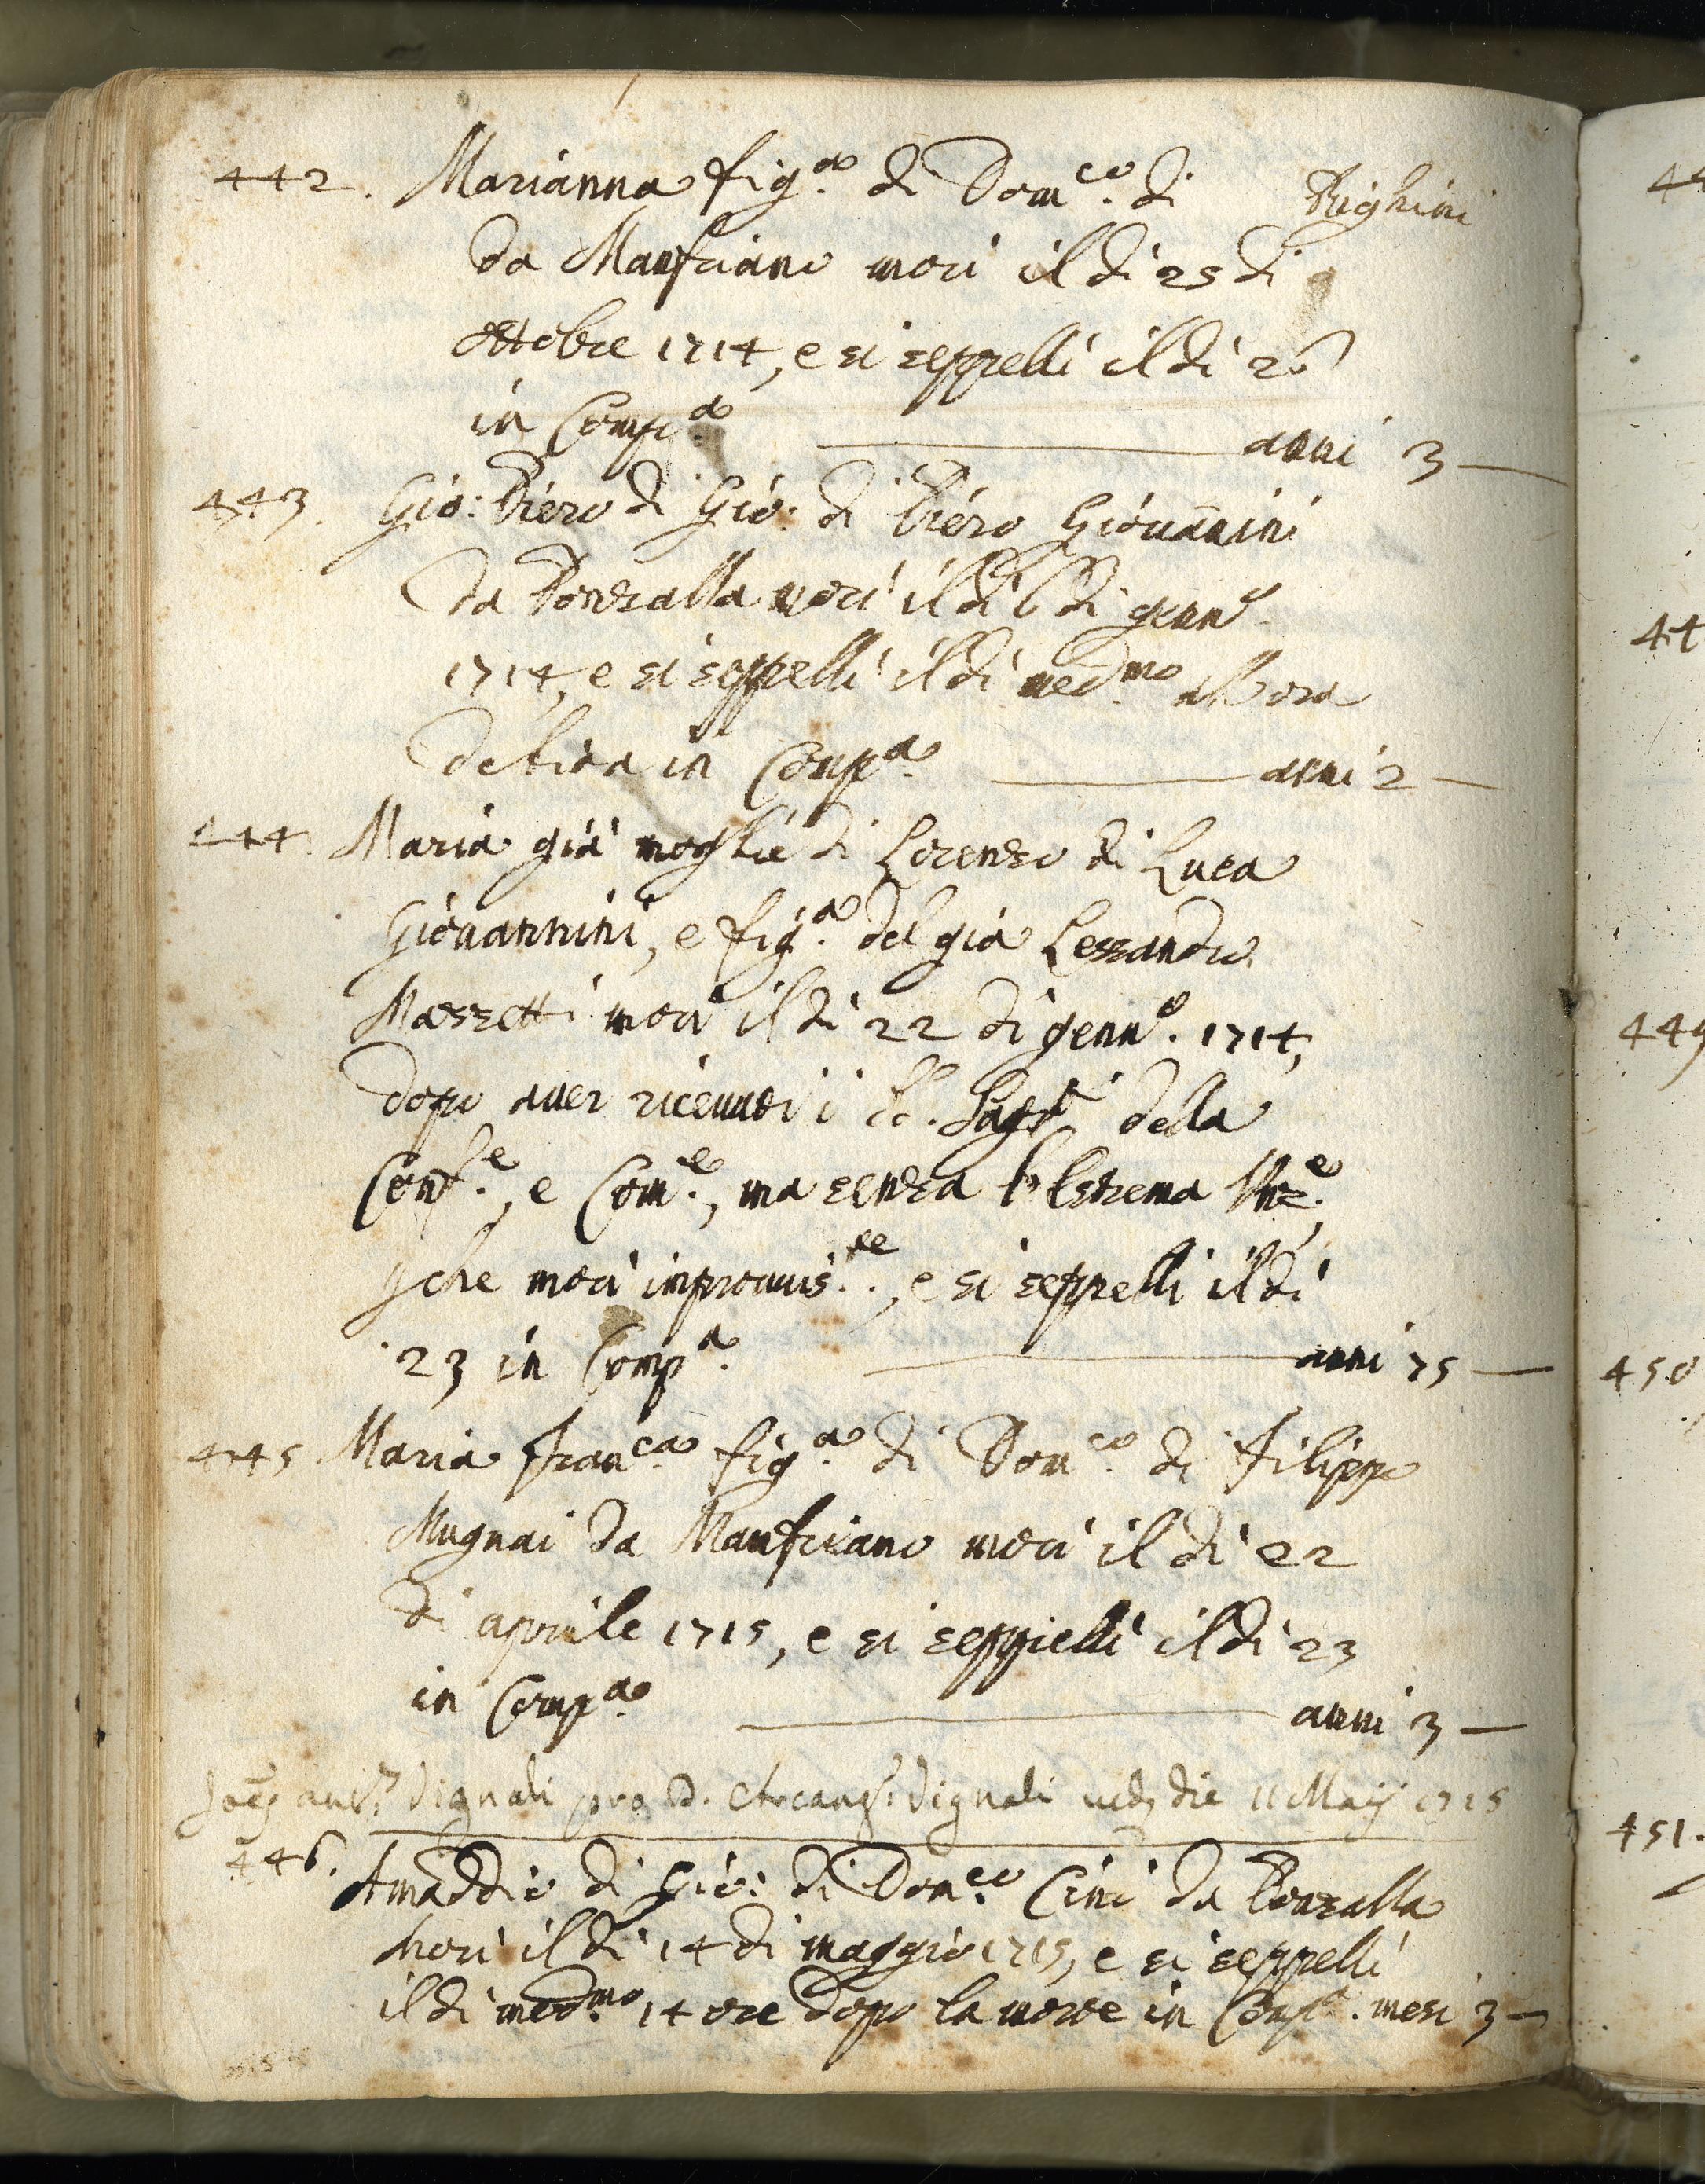 442. Marianna fig.a di Dom.co di Righini
da Manfriano morì il dì 25 di
ottobre 1714, e si seppelli il dì 26
in Comp.a anni 3
443. Gio: Piero di Gio: di Piero Giovanini
da Ponzalla morì il dì 6 di genn.o
1714, e si seppelli il dì med.mo all'ora
debita in Comp.a anni 2
444. Maria già moglie di Lorenzo di Luca
Giovannini, e fig.a del già Lessandro
Mazzetti morì il dì 22 di genn.o 1714,
dopo aver ricevuti i SS. Sagr.ti della
Conf.e, e Com.e, ma senza l'Estrema Unz.e
che morì improvvis.te, e si seppelli il dì
23 in Comp.a anni 75
445 Maria Fran.ca fig.a di Dom.co di Filippo
Mugnai da Manfriano morì il dì 22
di aprile 1715, e si seppielli il dì 23
in Comp.a anni 3
Vignali pro D. Arcang: Vignali die 11 Maij 1715
446. Amaddio di Gio: di Dom.co Cini da Ponzalla
morì il dì 14 di maggio 1715, e si seppelli
il dì med.mo 14 ore dopo la morte in Comp.a. mesi 3
44
44
449
450
451.